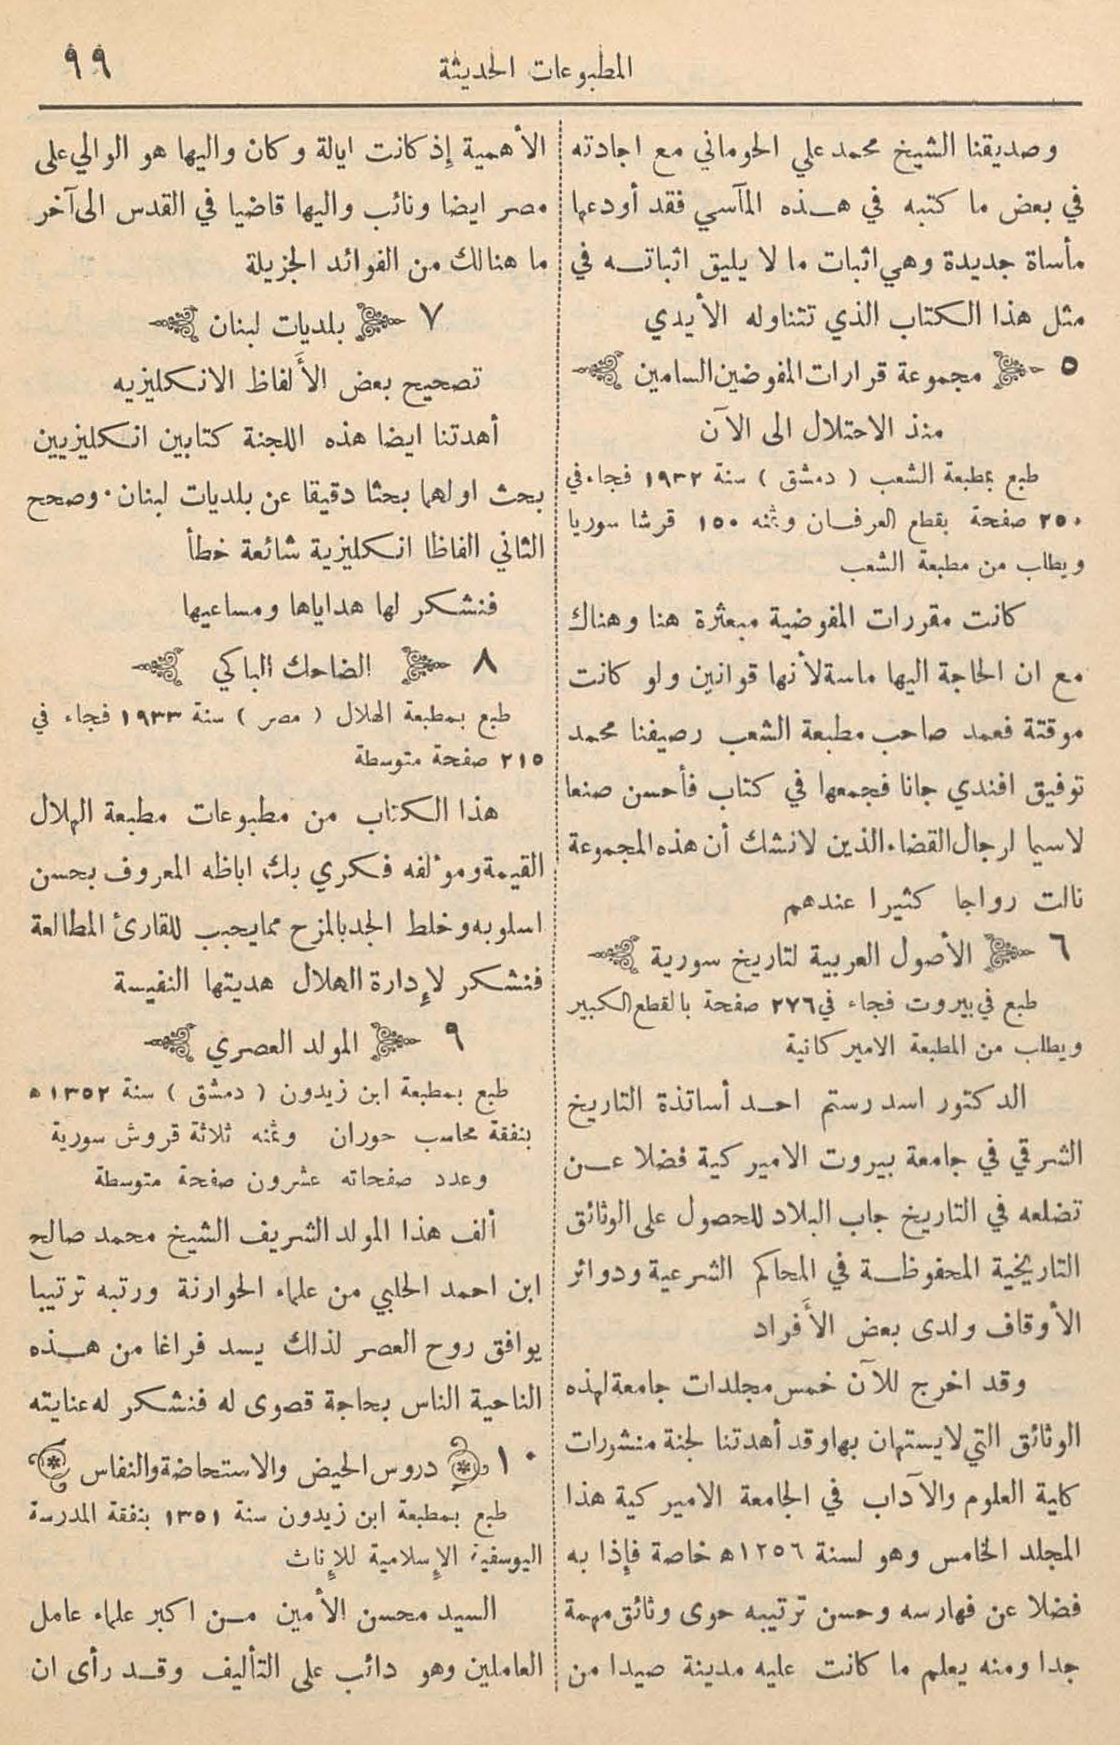 المطبوعات الحديثة
٩٩
وصديقنا الشيخ محمد علي الحوماني مع اجادته
في بعض ما كتبه في هذه المآسي فقد أودعها
مأساة جديدة وهي اثبات ما لا يليق اثباته في
مثل هذا الكتاب الذي تتناوله الأيدي
٥ مجموعة قرارات المفوضين السامين
منذ الاحتلال الى الآن
طبع بمطبعة الشعب ( دمشق ) سنة ١٩٣٢ فجاء في
٢٥٠ صفحة بقطع العرفان وثمنه ١٥٠ قرشا سوريا
ويطلب من مطبعة الشعب
كانت مقررات المفوضية مبعثرة هنا وهناك
مع ان الحاجة اليها ماسة لأنها قوانين ولو كانت
موقتة فعمد صاحب مطبعة الشعب رصيفنا محمد
توفيق افندي جانا فجمعها في كتاب فأحسن صنعا
لاسيما لرجال القضاء الذين لانشك أن هذه المجموعة
نالت رواجا كثيرا عندهم
٦ الأصول العربية لتاريخ سورية
طبع في بيروت فجاء في ٢٧٦ صفحة بالقطع الكبير
ويطلب من المطبعة الاميركانية
الدكتور اسد رستم احد أساتذة التاريخ
الشرقي في جامعة بيروت الاميركية فضلا عن
تضلعه في التاريخ جاب البلاد للحصول على الوثائق
التاريخية المحفوظة في المحاكم الشرعية ودوائر
الأوقاف ولدى بعض الأَفراد
وقد اخرج للآن خمس مجلدات جامعة لهذه
الوثائق التي لايستهان بها وقد أهدتنا لجنة منشورات
كلية العلوم والآداب في الجامعة الاميركية هذا
المجلد الخامس وهو لسنة ١٢٥٦ه خاصة فإذا به
فضلا عن فهارسه وحسن ترتيبه حوى وثائق مهمة
جدا ومنه يعلم ما كانت عليه مدينة صيدا من
الأهمية إذ كانت ايالة وكان واليها هو الوالي على
مصر ايضا ونائب واليها قاضيا في القدس الى آخر
ما هنالك من الفوائد الجزيلة
٧ بلديات لبنان
تصحيح بعض الأَلفاظ الانكليزيه
أهدتنا ايضا هذه اللجنة كتابين انكليزيين
بحث اولهما بحثا دقيقا عن بلديات لبنان . وصحح
الثاني الفاظا انكليزية شائعة خطأ
فنشكر لها هداياها ومساعيها
٨ الضاحك الباكي
طبع بمطبعة الهلال ( مصر ) سنة ١٩٣٣ فجاء في
٢١٥ صفحة متوسطة
هذا الكتاب من مطبوعات مطبعة الهلال
القيمة ومؤلفه فكري بك اباظه المعروف بحسن
اسلوبه وخلط الجد بالمزح مما يحبب للقارئ المطالعة
فنشكر لإدارة الهلال هديتها النفيسة
٩ المولد العصري
طبع بمطبعة ابن زيدون ( دمشق ) سنة ١٣٥٢ه
بنفقة محاسب حوران وثمنه ثلاثة قروش سورية
وعدد صفحاته عشرون صفحة متوسطة
ألف هذا المولد الشريف الشيخ محمد صالح
ابن احمد الحلبي من علماء الحوارنة ورتبه ترتيبا
يوافق روح العصر لذلك يسد فراغا من هذه
الناحية الناس بحاجة قصوى له فنشكر له عنايته
١٠ دروس الحيض والاستحاضة والنفاس
طبع بمطبعة ابن زيدون سنة ١٣٥١ بنفقة المدرسة
اليوسفية الإسلامية للإناث
السيد محسن الأمين من اكبر علماء عامل
العاملين وهو دائب على التأليف وقد رأى ان